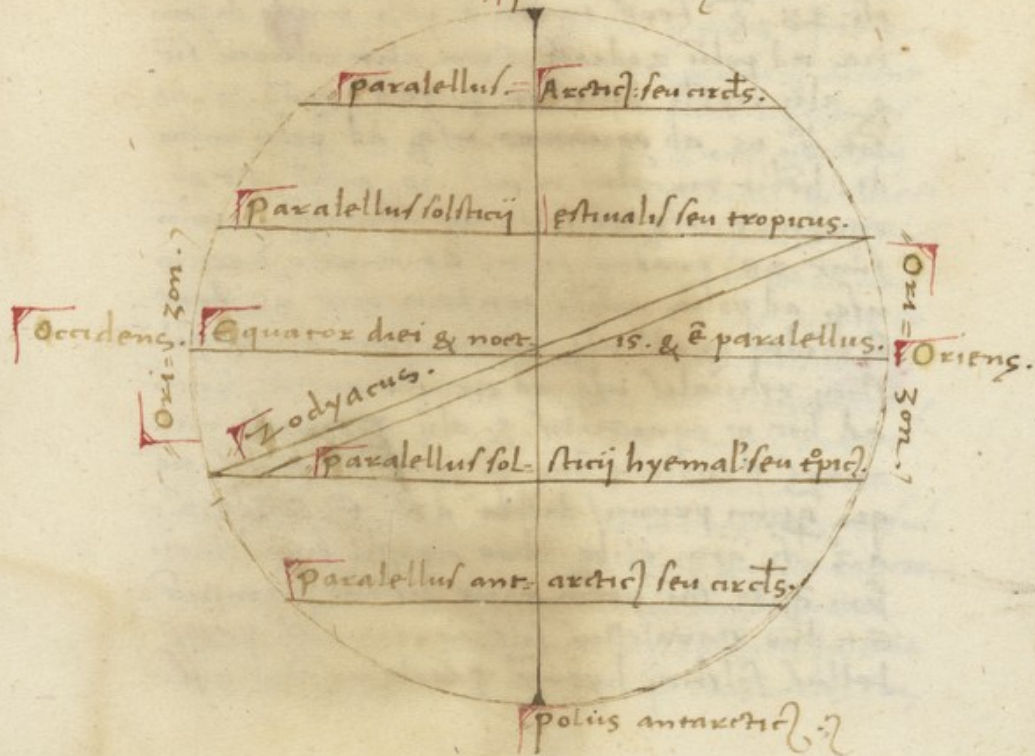 Paralellus. Arcticꝫ: seu circl̄s.
Paralellus solsticij estiualis seu tropicus.
Ori= zon.
Ori= zon.
Occidens. Equator diei & noct. is. & ē paralellus. Oriens.
Zodyacus.
Paralellus sol= sticij hyemał: seu t°picꝫ.
Paralellus ant= arcticꝫ seu circl̄s.
Polus antarcticꝫ.